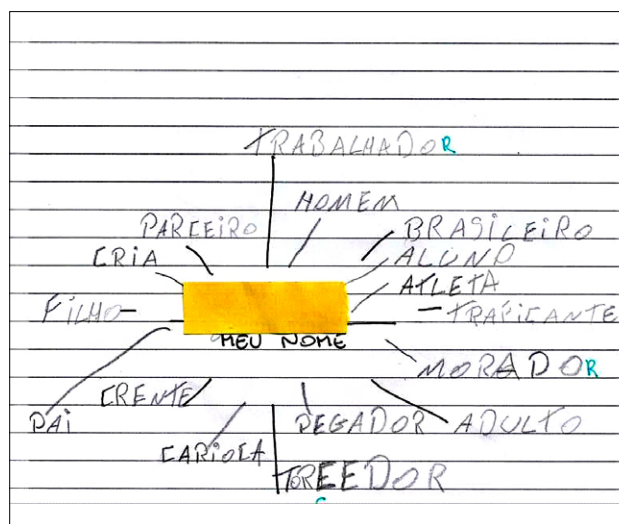 TRABALHADOR
HOMEM
PARCEIRO
BRASILEIRO
CRIA
ALUNO
ATLETA
FILHO
TRAFICANTE
MEU NOME
MORADOR
CRENTE
PAI
PEGADOR
ADULTO
CARIOCA
TOREEDOR
C